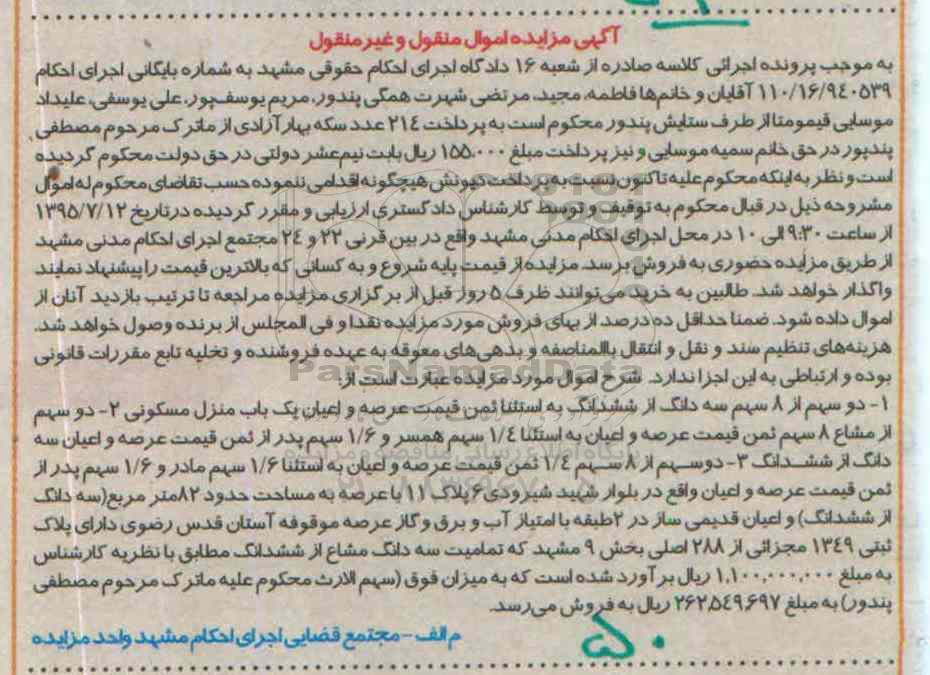 آگهی مزایده اموال منقول و غیر منقول
به موجب پرونده اجرائی کلاسه صادره از شعبه ۱۶ دادگاه اجرای احکام حقوقی مشهد به شماره بایگانی اجرای احکام
۱۱۰/۱۶/۹٤۰۵۳۹ آقایان و خانم‌ها فاطمه، مجید، مرتضی شهرت همگی پندور، مریم یوسف‌پور، علی یوسفی، علیداد
موسایی قیمومتا از طرف ستایش پندور محکوم است به پرداخت ۲۱٤ عدد سکه بهار آزادی از ماترک مرحوم مصطفی
پندپور در حق خانم سمیه موسایی و نیز پرداخت مبلغ ۱۵۵،۰۰۰ ریال بابت نیم‌عشر دولتی در حق دولت محکوم گردیده
است و نظر به اینکه محکوم علیه تاکنون نسبت به پرداخت دیونش هیچگونه اقدامی ننموده حسب تقاضای محکوم له اموال
مشروحه ذیل در قبال محکوم به توقیف و توسط کارشناس دادگستری ارزیابی و مقرر گردیده در تاریخ ۱۳۹۵/۷/۱۲
از ساعت ۹:۳۰ الی ۱۰ در محل اجرای احکام مدنی مشهد واقع در بین قرنی ۲۲ و ۲٤ مجتمع اجرای احکام مدنی مشهد
از طریق مزایده حضوری به فروش برسد. مزایده از قیمت پایه شروع و به کسانی که بالاترین قیمت را پیشنهاد نمایند
واگذار خواهد شد. طالبین به خرید می‌توانند ظرف ۵ روز قبل از برگزاری مزایده مراجعه تا ترتیب بازدید آنان از
اموال داده شود. ضمنا حداقل ده درصد از بهای فروش مورد مزایده نقدا و فی المجلس از برنده وصول خواهد شد.
هزینه‌های تنظیم سند و نقل و انتقال بالمناصفه و بدهی‌های معوقه به عهده فروشنده و تخلیه تابع مقررات قانونی
بوده و ارتباطی به این اجرا ندارد. شرح اموال مورد مزایده عبارت است از:
۱- دو سهم از ۸ سهم سه دانگ از ششدانگ به استثنا ثمن قیمت عرصه و اعیان یک باب منزل مسکونی ۲- دو سهم
از مشاع ۸ سهم ثمن قیمت عرصه و اعیان به استثنا ۱/٤ سهم همسر و ۱/۶ سهم پدر از ثمن قیمت عرصه و اعیان سه
دانگ از ششدانگ ۳- دوسهم از ۸ سهم ۱/٤ ثمن قیمت عرصه و اعیان به استثنا ۱/۶ سهم مادر و ۱/۶ سهم پدر از
ثمن قیمت عرصه و اعیان واقع در بلوار شهید شیرودی ۶ پلاک ۱۱ با عرصه به مساحت حدود ۸۲متر مربع (سه دانگ
از ششدانگ) و اعیان قدیمی ساز در ۲طبقه با امتیاز آب و برق و گاز عرصه موقوفه آستان قدس رضوی دارای پلاک
ثبتی ۱۳٤۹ مجزائی از ۲۸۸ اصلی بخش ۹ مشهد که تمامیت سه دانگ مشاع از ششدانگ مطابق با نظریه کارشناس
به مبلغ ۱,۱۰۰,۰۰۰,۰۰۰ ریال برآورد شده است که به میزان فوق (سهم الارث محکوم علیه ماترک مرحوم مصطفی
پندور) به مبلغ ۲۶۲,۵٤۹,۶۹۷ ریال به فروش می‌رسد.
م الف - مجتمع قضایی اجرای احکام مشهد واحد مزایده
ParsNamadData
پایگاه اطلاع رسانی مناقصه و مزایده